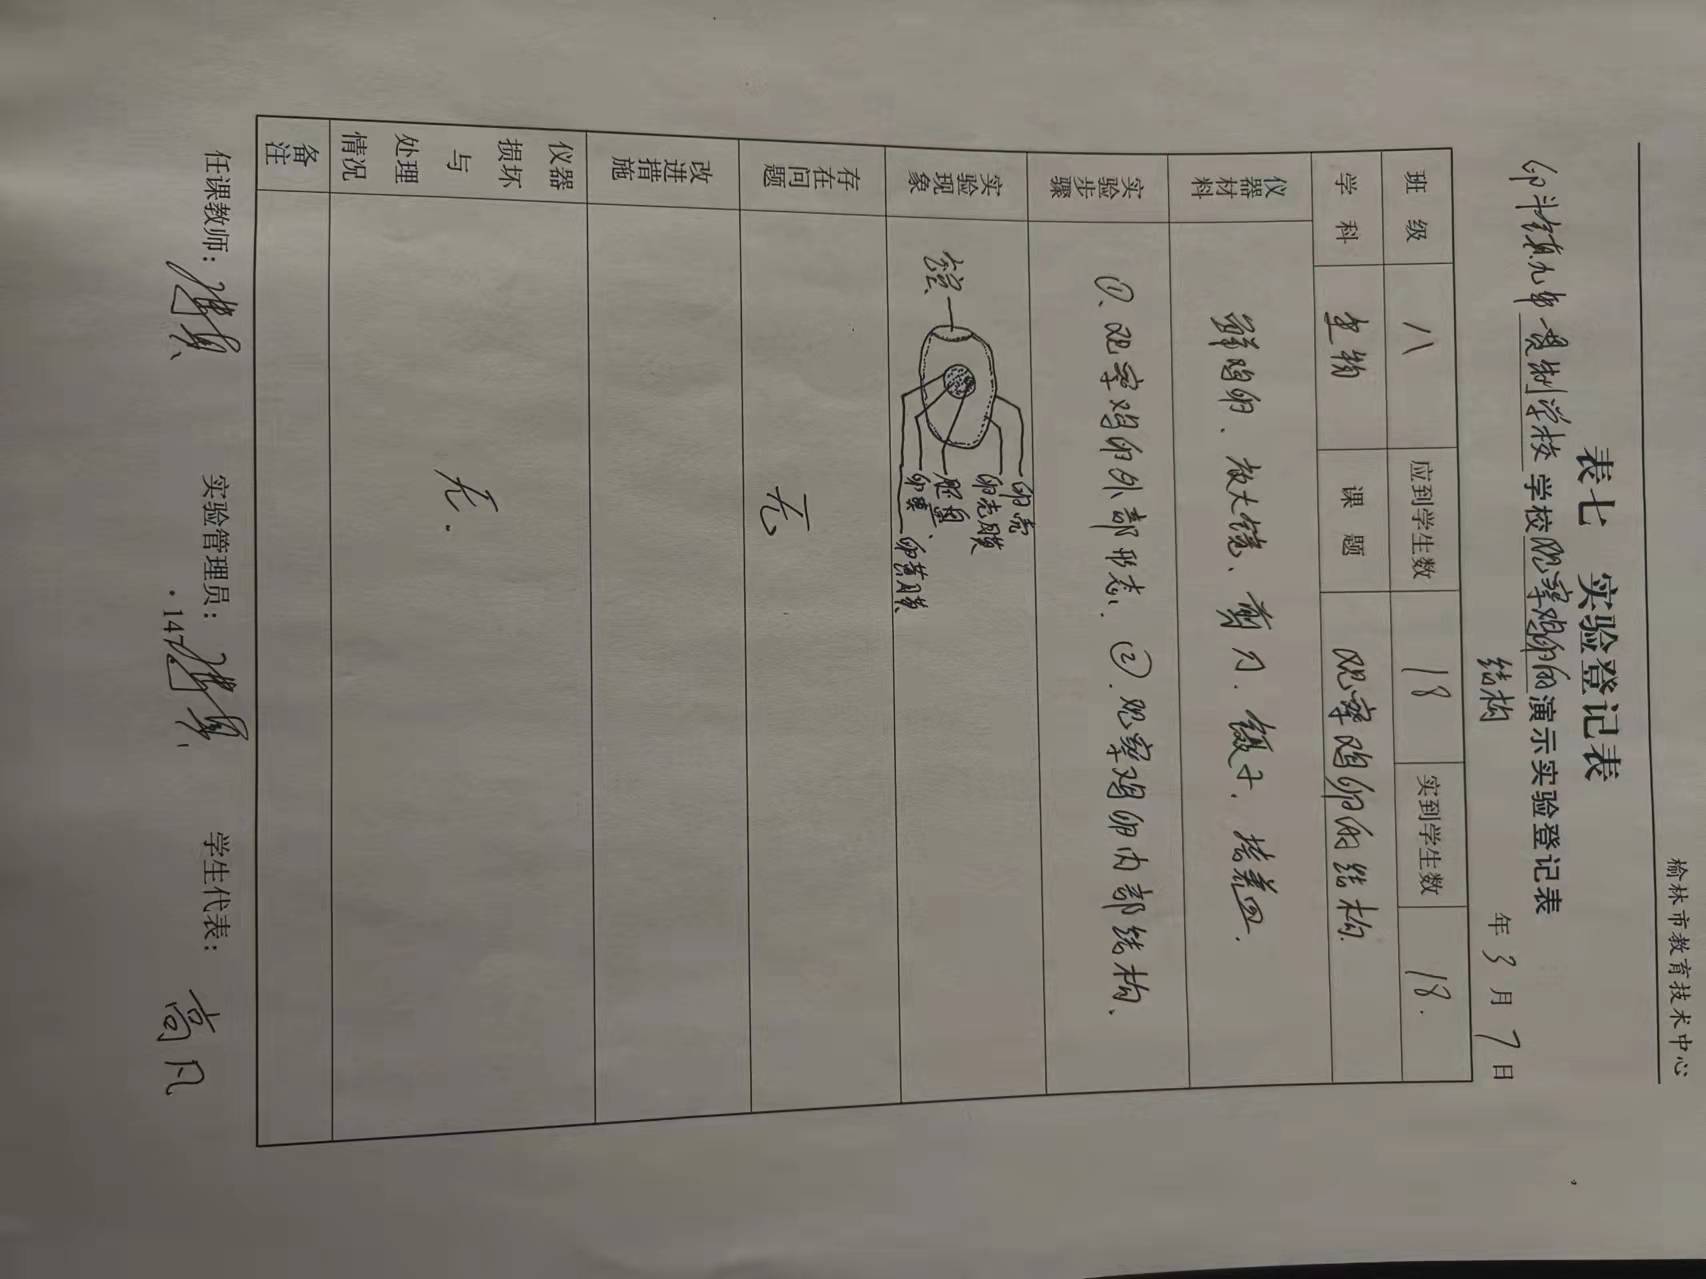 榆林市教育技术中心
表七 实验登记表
印斗镇九年一贯制学校学校观察鸡卵的演示实验登记表
结构
年3月7日
班级 八 应到学生数 18 实到学生数 18.
学科 生物 课题 观察鸡卵的结构.
仪器材料 鲜鸡卵、放大镜、剪刀.镊子.培养皿.
实验步骤 ①、观察鸡卵外部形态、②.观察鸡卵内部结构、
实验现象
气室
卵壳
卵壳膜
胚盘、
卵黄
卵黄膜
存在问题 无
改进措施
仪器损坏与处理情况 无.
备注
任课教师: 实验管理员: 学生代表: 高凡
· 147